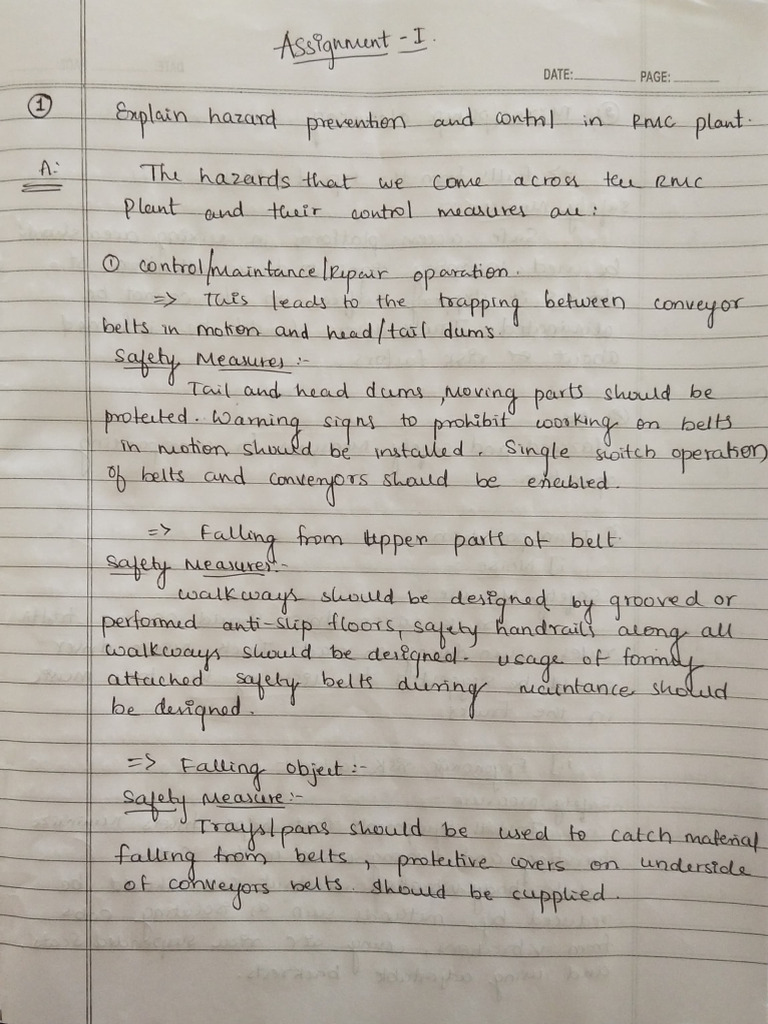 Assignment - I.
DATE:________ PAGE:________
① Explain hazard prevention and control in RMC plant.
A: The hazards that we come across the RMC
Plant and their control measures are:
① control/Maintance/Ripair oparation.
=> This leads to the trapping between conveyor
belts in motion and head/tail dums.
Safety Measures :-
Tail and head dums, Moving parts should be
protected. Warning signs to prohibit working on belts
in motion should be installed. Single switch operation
of belts and conveyors should be enebled.
=> Falling from upper parts of belt.
Safety Measures:-
Walkways should be designed by grooved or
performed anti-slip floors, safety handrails along all
walkways should be designed. usage of formly
attached safety belts during maintance should
be designed.
=> Falling object :-
Safety Measure :-
Trays/pans should be used to catch material
falling from belts, protective covers on underside
of conveyors belts. should be cupplied.